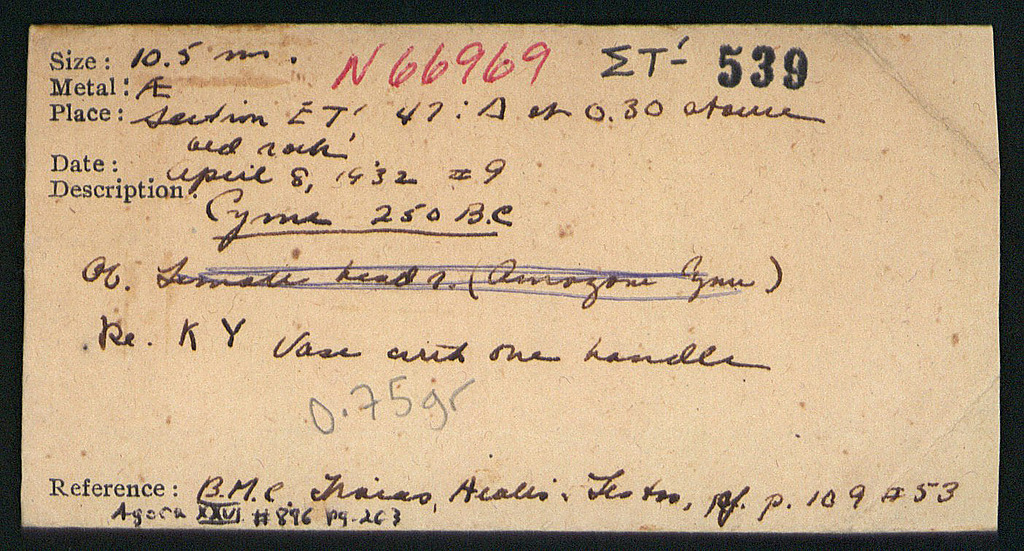 Size: 10.5 m. N66969 ΣΤ́- 539
Metal: Æ
Place: Section ΣΤ' 47:Δ at 0.30 above
bed rock
Date: April 8, 1932 #9
Description:
Cyme 250 B.C
Ob. Female head r. (Amazon Kyme)
Re. K Y Vase with one handle
0.75gr
Reference: B.M.C. Troas, Aeolis, Lesbos, p. 109 #53
Agora XXVI #896 pg. 263